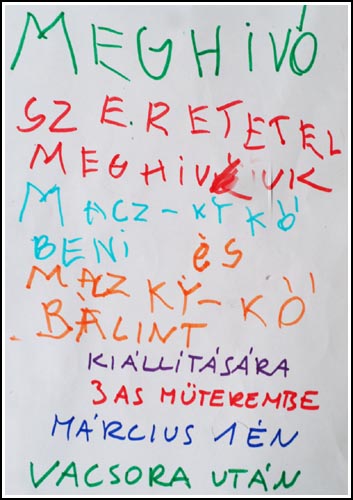 MEGHIVÓ
SZERETETEL
MEGHIVUK
MACZ-KÝ KŐ
BENI ÉS
MACZ KÝ-KŐ
BÁLINT
KIÁLLÍTÁSÁRA
3 AS MŰTEREMBE
MÁRCIUS 1 ÉN
VACSORA UTÁN